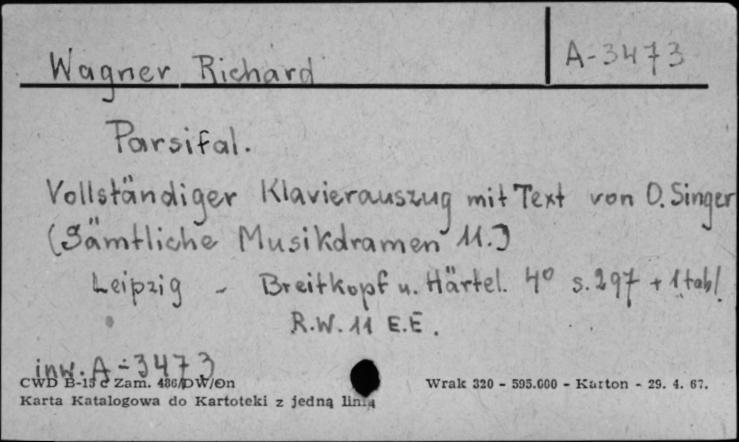 Wagner Richard A-3473
Parsifal.
Vollständiger Klavierauszug mit Text von O. Singer
(Sämtliche Musikdramen 11.)
Leipzig - Breitkopf u. Härtel. 4° s. 297 + 1 tabl.
R.W. 11 E.E.
inw. A-3473
CWD B-15 c Zam. 486/DW/On
Wrak 320 - 595.000 - Karton - 29. 4. 67.
Karta Katalogowa do Kartoteki z jedną linią